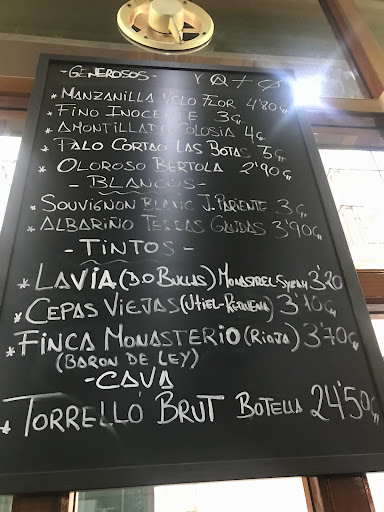 - GENEROSOS -
* MANZANILLA VELO FLOR 4'80€
* FINO INOCENTE 3€
* AMONTILLADO COLOSIA 4€
* PALO CORTAO LAS BOTAS 5€
* OLOROSO BERTOLA 2'90€
- BLANCOS -
* SOUVIGNON BLANC J. PARIENTE 3€
* ALBARIÑO TERRAS GAUDAS 3'90€
- TINTOS -
* LAVIA (DO BULLAS) MONASTREL-SYRAH 3'20
* CEPAS VIEJAS (UTIEL-REQUENA) 3'10€
* FINCA MONASTERIO (RIOJA) 3'70€
(BARON DE LEY)
- CAVA
* TORRELLÓ BRUT BOTELLA 24'50€